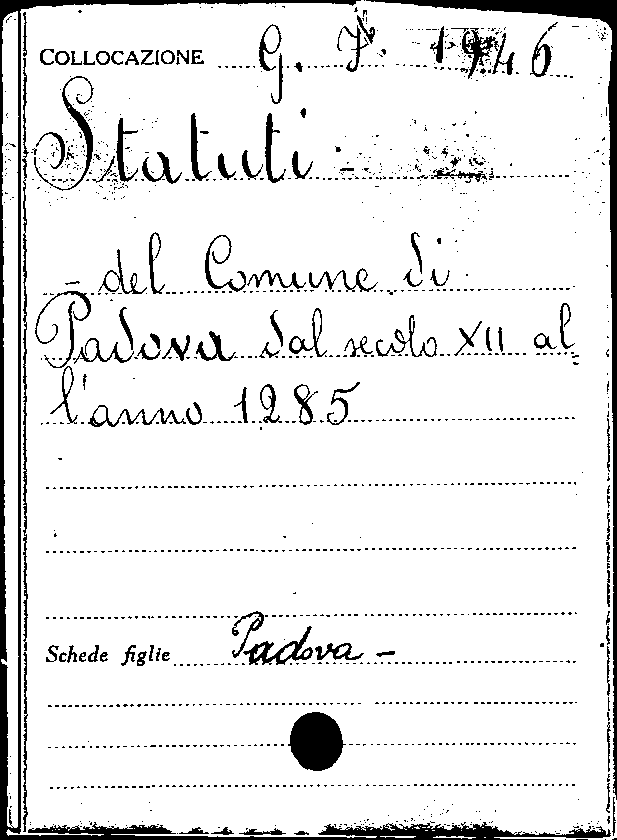 COLLOCAZIONE G. F. 1946
Statuti -
- del Comune di
Padova dal secolo XII al=
l'anno 1285
Schede figlie Padova -